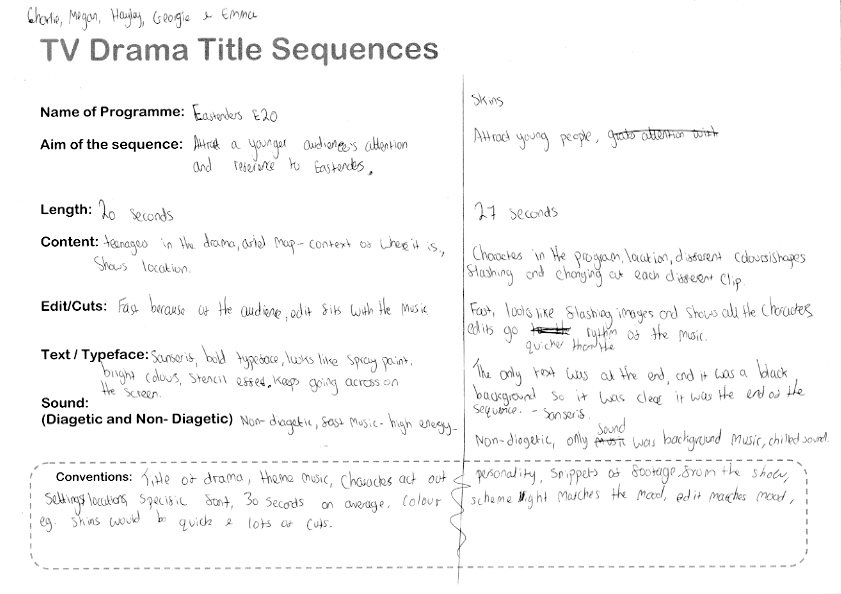 Charlie, Megan, Hayley, Georgie & Emma
TV Drama Title Sequences
Name of Programme: Eastenders E20
Aim of the sequence: Attract a younger audience's attention
and reference to Eastenders.
Length: 20 seconds
Content: teenagers in the drama, ariel map - context of where it is,
shows location.
Edit/Cuts: Fast because of the audience, edit fits with the music
Text / Typeface: Sanserif, bold typeface, looks like spray paint,
bright colours, stencil effect. Keeps going across on
the screen.
Sound:
(Diagetic and Non- Diagetic) Non-diagetic, fast music - high energy
Skins
Attract young people, grabs attention with
27 seconds
Characters in the program, location, different colours/shapes
flashing and changing at each different clip.
Fast, looks like flashing images and shows all the characters
edits go quicker than the rythm of the music.
The only text was at the end, and it was a black
background so it was clear it was the end of the
sequence. - Sanserif.
Non-diogetic, only sound was background music, chilled sound.
Conventions: Title of drama, theme music, Characters act out personality, snippets of footage from the show,
settings/locations, specific font, 30 seconds on average, colour scheme light matches the mood, edit matches mood,
eg. skins would be quick & lots of cuts.